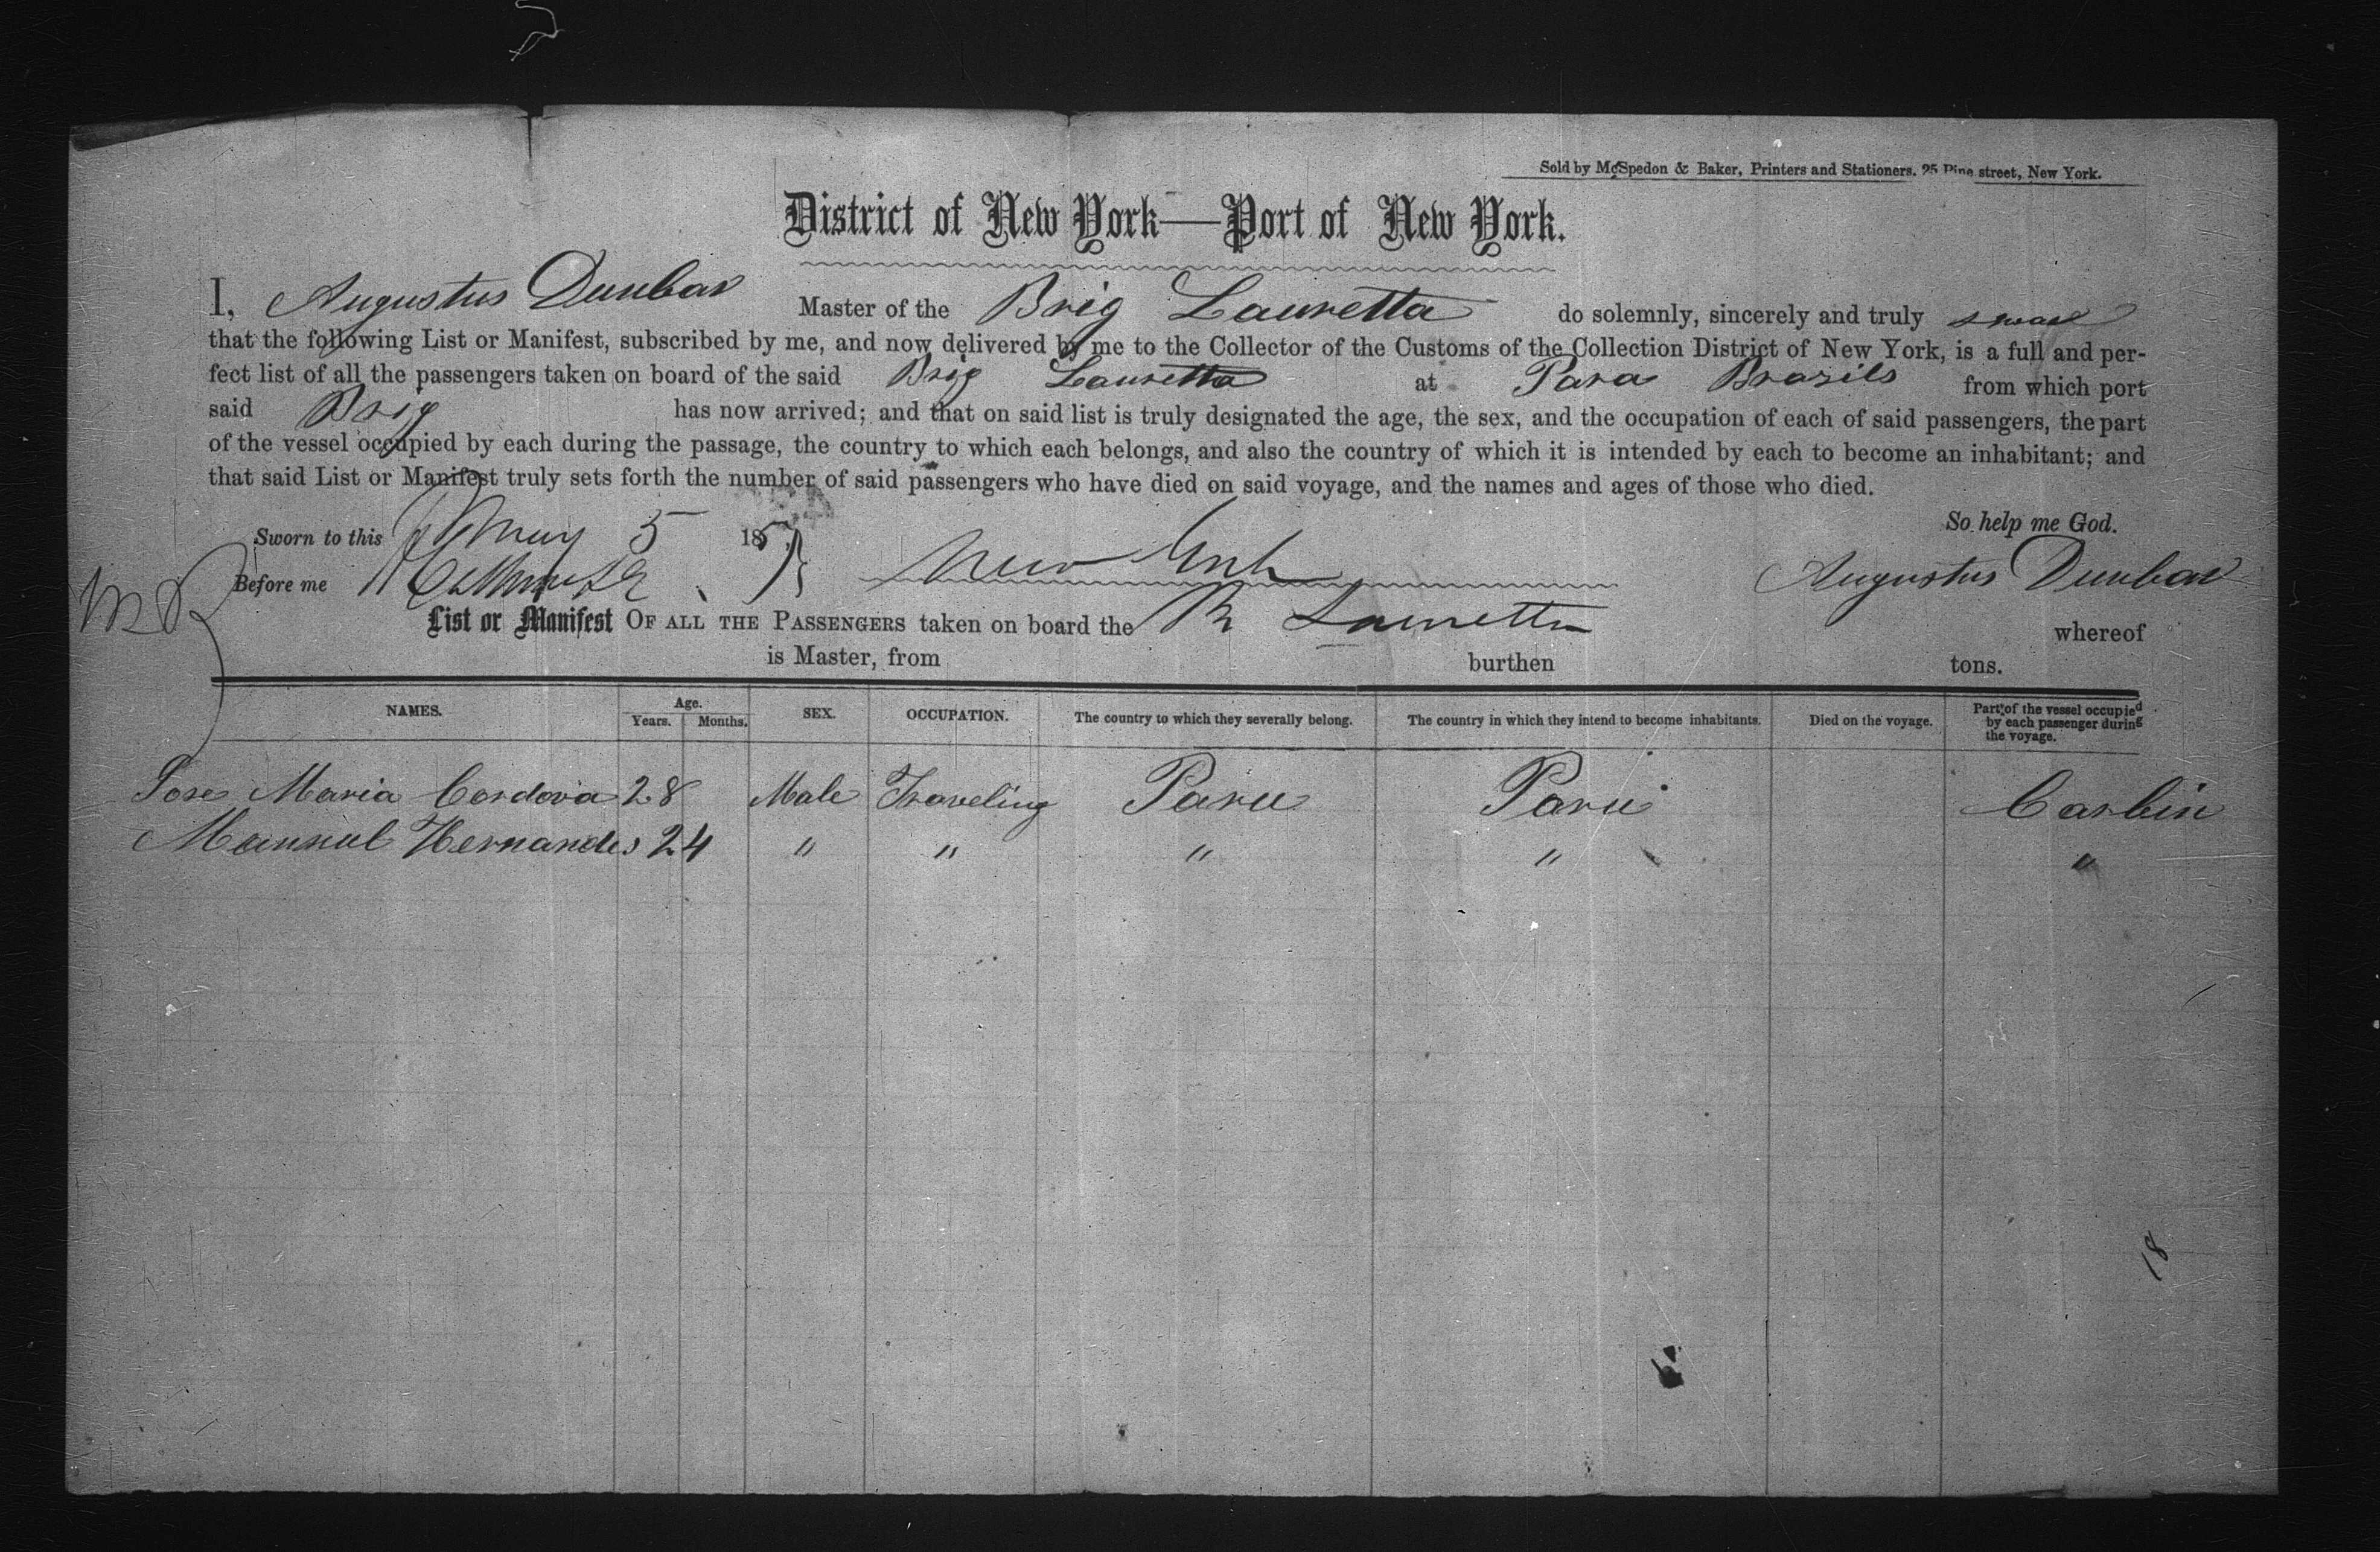 Sold by McSpedon & Baker, Printers and Stationers, 25 Pine street, New York.
District of New York—Port of New York.
I, Augustus Dunbar Master of the Brig Lauretta do solemnly, sincerely and truly swear
that the following List or Manifest, subscribed by me, and now delivered by me to the Collector of the Customs of the Collection District of New York, is a full and per-
fect list of all the passengers taken on board of the said Brig Lauretta at Para Brazils from which port
said Brig has now arrived; and that on said list is truly designated the age, the sex, and the occupation of each of said passengers, the part
of the vessel occupied by each during the passage, the country to which each belongs, and also the country of which it is intended by each to become an inhabitant; and
that said List or Manifest truly sets forth the number of said passengers who have died on said voyage, and the names and ages of those who died.
So help me God.
Sworn to this May 5 185
New York
Before me
Augustus Dunbar
List or Manifest OF ALL THE PASSENGERS taken on board the Lauretta whereof
is Master, from burthen tons.
NAMES. Age. Years. Months. SEX. OCCUPATION. The country to which they severally belong. The country in which they intend to become inhabitants. Died on the voyage. Part of the vessel occupied by each passenger during the voyage.
Jose Maria Cordova 28 Male Traveling Paru Paru Carbin
Manuul Hernandes 24 " " " " "
18